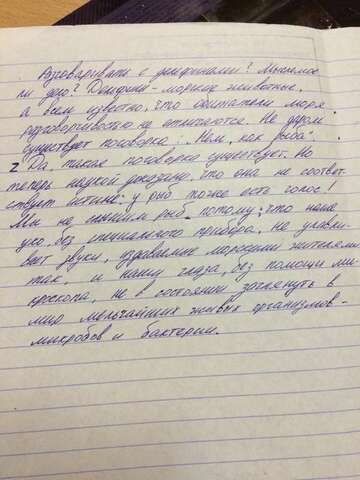 Разговаривать с дельфинами? Мыслимое
ли дело? Дельфины - морские животные,
а всем известно, что обитатели моря
разговорчивостью не отличаются. Не даром
существует поговорка: „Нем, как рыба".
2 Да, такая поговорка существует. Но
теперь наукой доказано, что она не соответ-
ствует истине: у рыб тоже есть голос!
Мы не слышим рыб потому, что наше
ухо, без специального прибора, не улавли-
вает звуки, издаваемые морскими жителями
так, и наши глаза, без помощи ми
кроскопа, не в состоянии заглянуть в
мир мельчайших живых организмов -
микробов и бактерии.